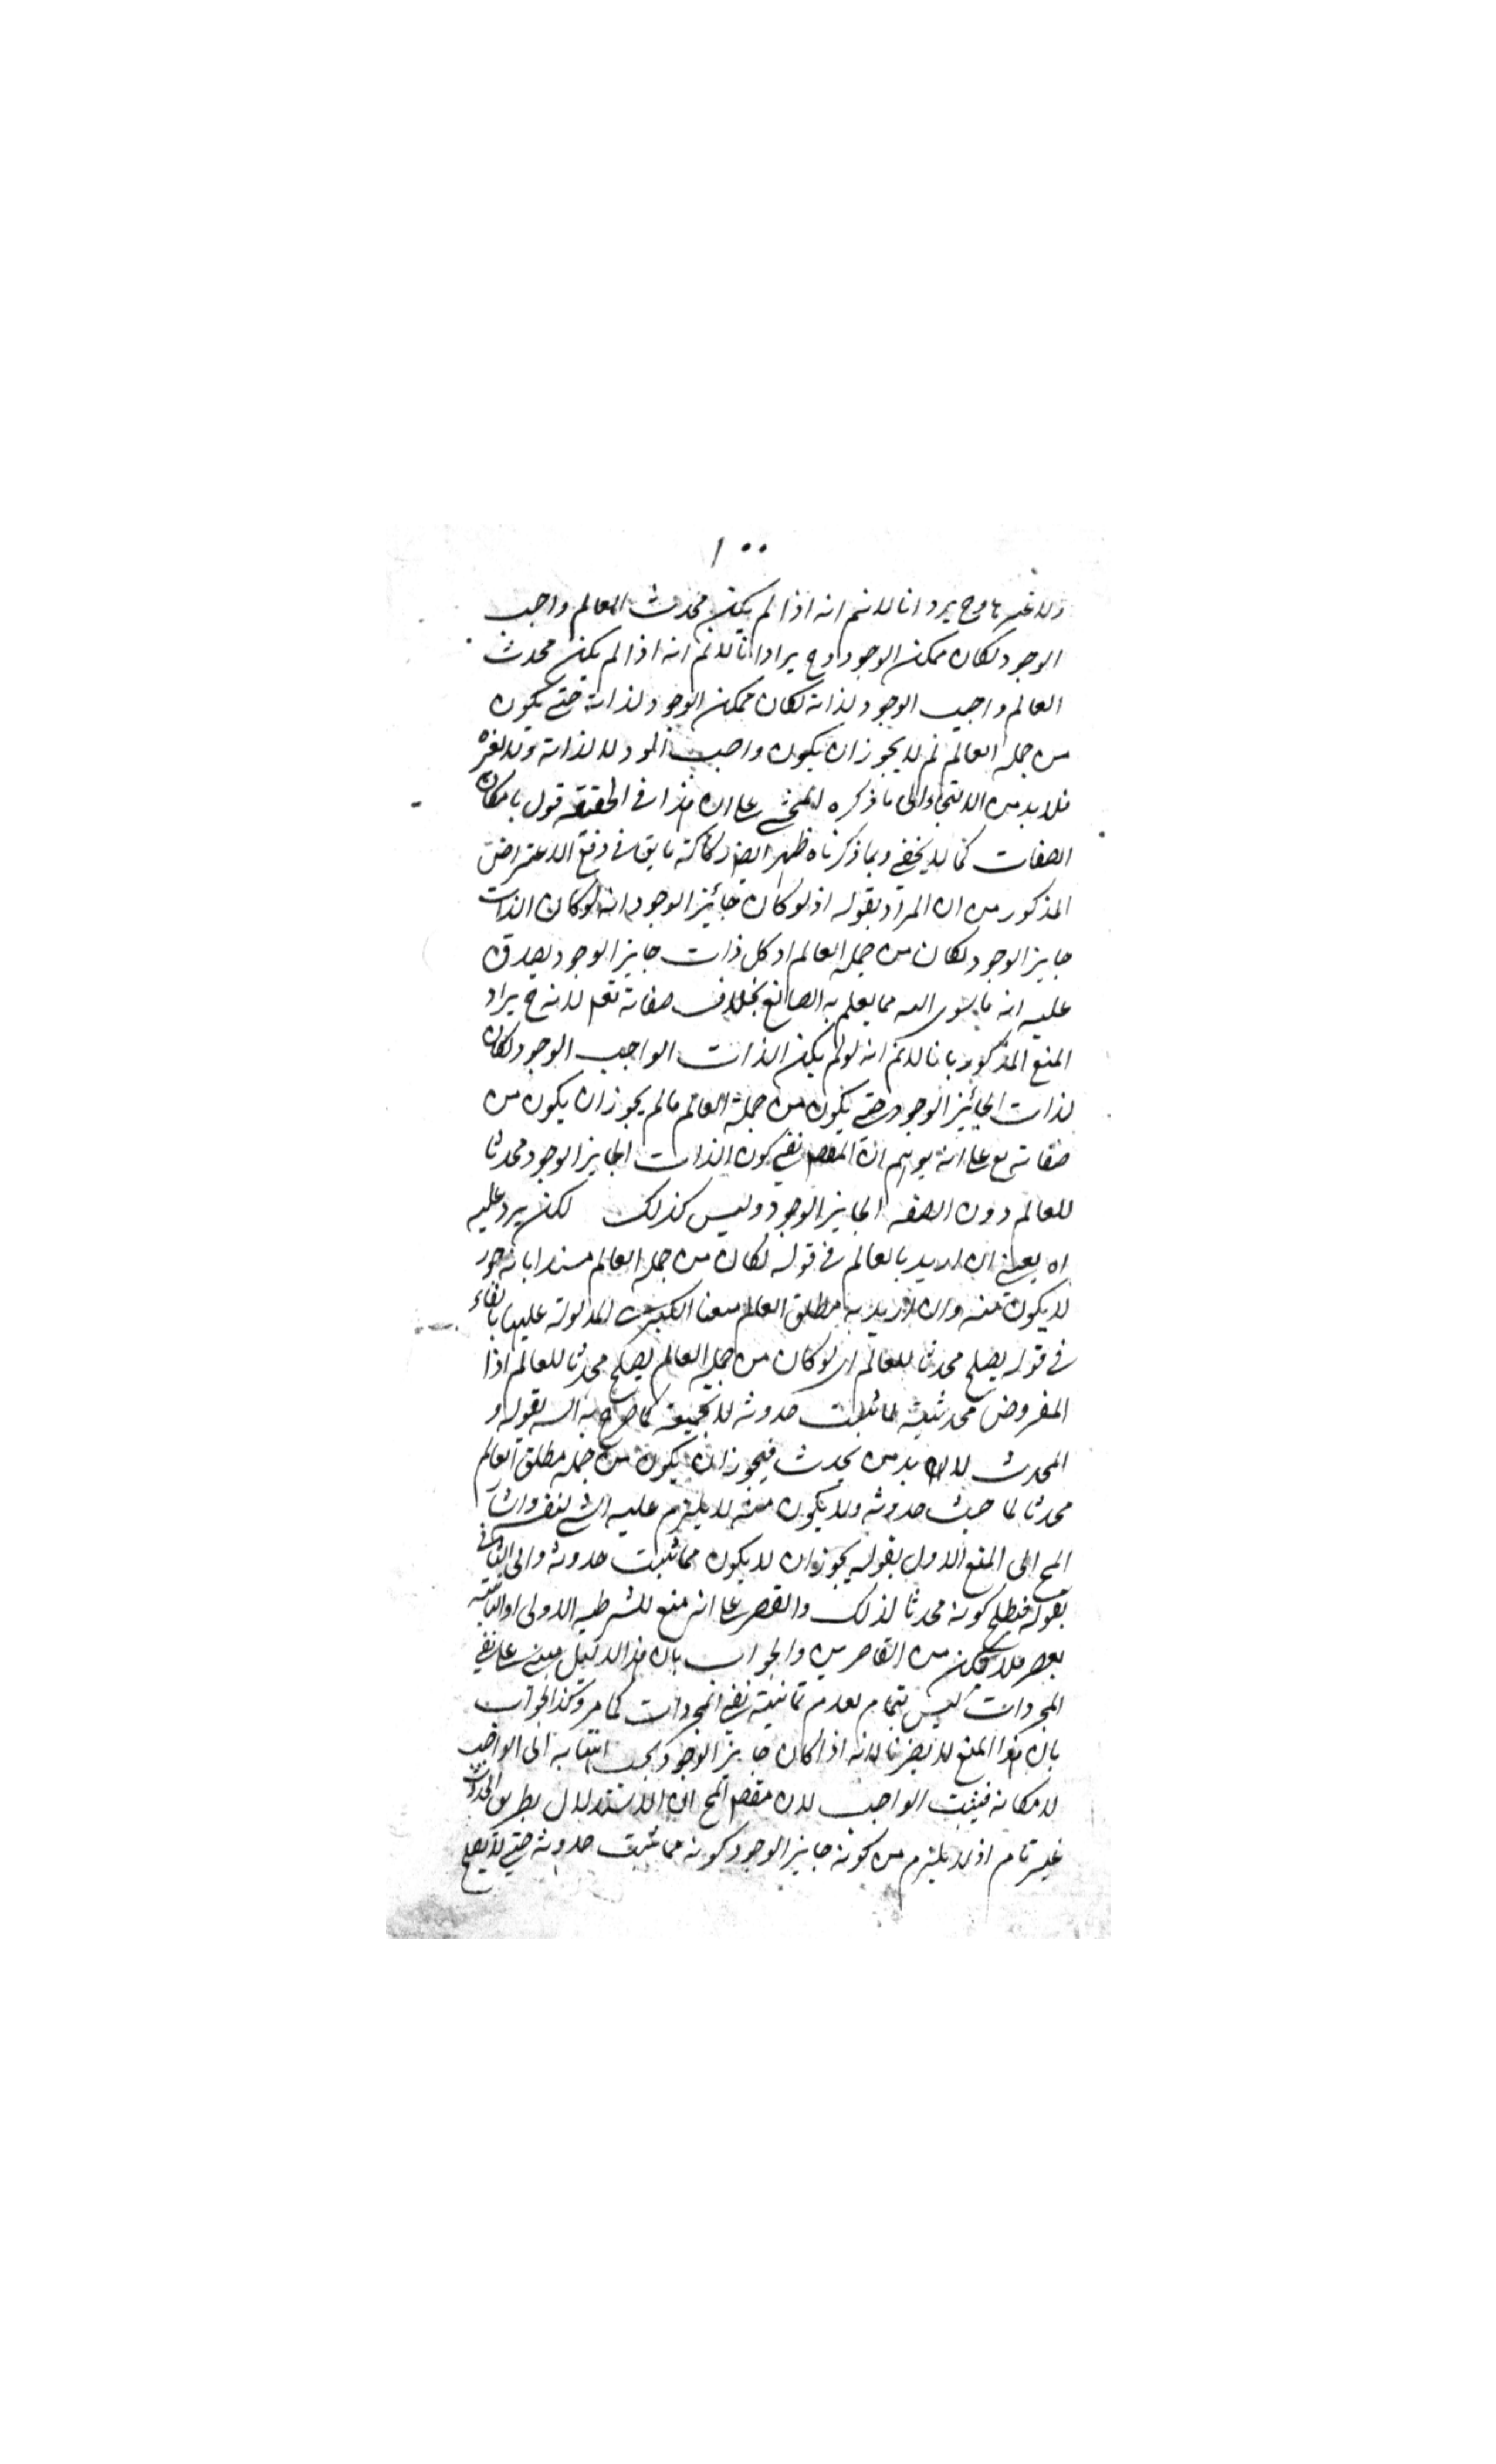 ١٠٠
ولا غيرها وح يرد انا لانم انه اذا لم يكن محدث العالم واجب
الوجود لكان ممكن الوجود وح يراد انا لانم انه اذا لم يكن محدث
العالم واجب الوجود لذاته لكان ممكن الوجود لذاته حتى يكون
من جملة العالم لم لا يجوز ان يكون واجب الوجود لا لذاته ولا لغيره
فلا بد من الالتجاء الى ما ذكره المحشي على ان هذا في الحقيقة قول بامكان
الصفات كما لا يخفى وبما ذكرناه ظهر ايضا ركاكة ما يق في دفع الاعتراض
المذكور من ان المراد بقوله اذ لو كان جائز الوجود انه لو كان الذات
جايز الوجود لكان من جملة العالم اذ كل ذات جايز الوجود يصدق
عليه انه ما سوى الله مما يعلم به الصانع بخلاف صفاته تعم لانه ح يراد
المنع المذكور بانا لانم انه لو لم يكن الذات الواجب الوجود لكان
لذات الجائز الوجود حتى يكون من جملة العالم ما لم يجوز ان يكون من
صفاته مع على انه يوهم ان المقصم نفي كون الذات الجايز الوجود محدثا
للعالم دون الصفه الجايز الوجود وليس كذلك لكن يرد عليه
اه يعني ان اريد بالعالم في قوله لكان من جملة العالم مسندا بانه يجوز
لا يكون منه وان اريد به مطلق العالم منعنا الكبرى المدلولة عليها بالفاء
في قوله يصلح محدثا للعالم اى لو كان من جملة العالم يصلح محدثا للعالم اذا
المفروض محدثيته لما ثبت حدوثه لا لجميعه كما صرح به الش بقوله و
المحدث لا بد من يحدث فيجوز ان يكون من جملة مطلق العالم
محدثا لما حيث حدوثه ولا يكون منه لا يلزم عليه الشئ لنفسه واشار
المح الى المنع الاول بقوله يجوز ان لا يكون مما ثبت حدوثه والى الثاني
بقوله فيصلح كونه محدثا لذلك والقصر على انه منع للشرطيه الاولى او الثانية
بعصر فلا يكن من القاصرين والجواب بان هذا الدليل مبني على نفي
المجردات ليس بتمام لعدم تمامية نفي المجردات كما مر وكذا الجواب
بان هذا المنع لا يضرنا لانه اذا كان جايز الوجود يجب انتهائه الى الواجب
لامكانه فيثبت الواجب لان مقصم المح ان الاستدلال بطريق الحدوث
غير تام اذ لا يلزم من كونه جايز الوجود كونه مما ثبت حدوثه حتى لا يصلح